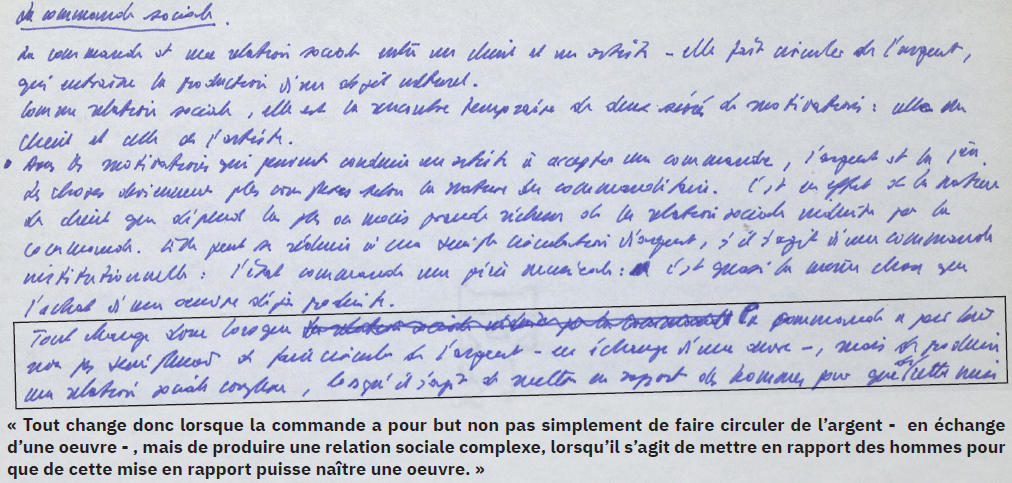 La commande sociale.
La commande est une relation sociale entre un client et un artiste - elle fait circuler de l'argent,
qui entraîne la production d'un objet culturel.
Comme relation sociale, elle est la rencontre temporaire de deux séries de motivations : celle du
client et celle de l'artiste.
• Avec les motivations qui peuvent conduire un artiste à accepter une commande, l'argent est la
Les choses deviennent plus complexes selon la nature du commanditaire. C'est en effet de la nature
du client que dépend la plus ou moins grande richesse de la relation sociale induite par la
commande. Elle peut se réduire à une simple circulation d'argent, s'il s'agit d'une commande
institutionnelle : l'état commande une pièce musicale : c'est quasi la même chose que
l'achat d'une oeuvre déjà produite.
Tout change donc lorsque la relation sociale induite par la commande la commande a pour but
non pas simplement de faire circuler de l'argent - en échange d'une oeuvre -, mais de produire
une relation sociale complexe, lorsqu'il s'agit de mettre en rapport des hommes pour que de cette mise
« Tout change donc lorsque la commande a pour but non pas simplement de faire circuler de l'argent - en échange
d'une oeuvre - , mais de produire une relation sociale complexe, lorsqu'il s'agit de mettre en rapport des hommes pour
que de cette mise en rapport puisse naître une oeuvre. »